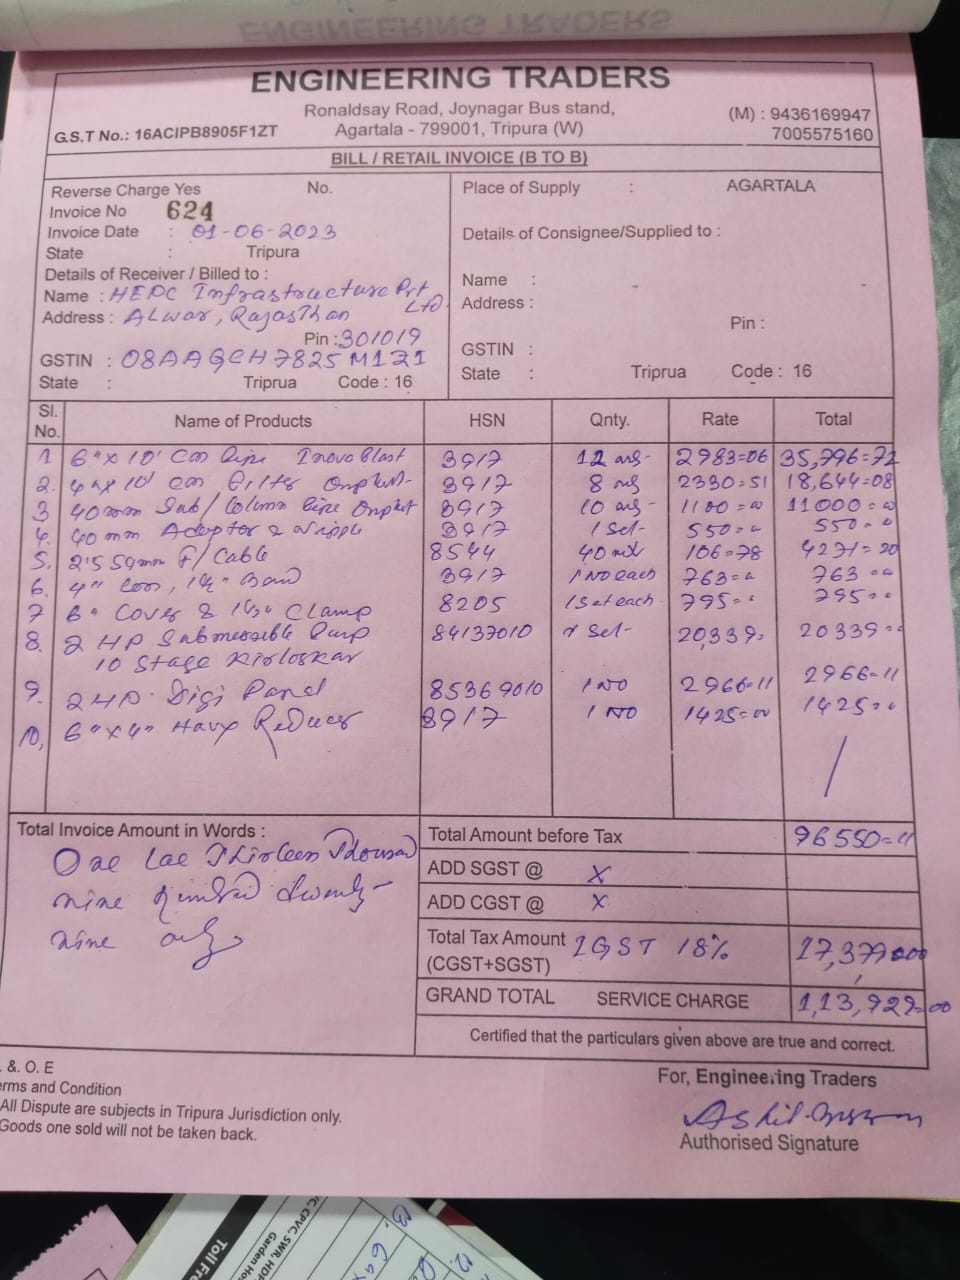 ENGINEERING TRADERS
ENGINEERING TRADERS
Ronaldsay Road, Joynagar Bus stand,
Agartala - 799001, Tripura (W)
G.S.T No.: 16ACIPB8905F1ZT
(M) : 9436169947
7005575160
BILL / RETAIL INVOICE (B TO B)
Reverse Charge Yes No.
Invoice No 624
Invoice Date : 01-06-2023
State : Tripura
Details of Receiver / Billed to :
Name : HEPC Infrastructure Pvt Ltd.
Address : Alwar, Rajasthan
Pin : 301019
GSTIN : 08AAGCH7825M1ZI
State : Triprua Code : 16
Place of Supply : AGARTALA
Details of Consignee/Supplied to :
Name :
Address :
Pin :
GSTIN :
State : Triprua Code : 16
Sl. No. Name of Products HSN Qnty. Rate Total
1 6"x10' Con Pipe 3917 12 2983=06 35,796=72
2. 4"x10' Con Filter 3917 8 2330=51 18,644=08
3 40mm Sub/Column Pipe 3917 10 1100=00 11000=00
4. 40 mm Adaptor & Nipple 3917 1 Set 550=0 550=0
5. 2.5 Sqmm F/Cable 8544 40 106=78 4271=20
6. 4" 3917 1 No each 763=0 763=0
7 6" Cover & Clamp 8205 1 Set each 795=0 795=0
8. 2 HP Submersible Pump 84137010 Set 20,339. 20339=0
10 Stage Kirloskar
9. 2 HP Digi Panel 85369010 1 No 2966=11 2966=11
10, 6"x4" Havy Reducer 3917 1 No 1425=00 1425=0
Total Invoice Amount in Words :
One lac Thirteen Thousand
nine hundred twenty-
nine only
Total Amount before Tax 96550=11
ADD SGST @ X
ADD CGST @ X
Total Tax Amount IGST 18% 17,379=00
(CGST+SGST)
GRAND TOTAL SERVICE CHARGE 1,13,929=00
Certified that the particulars given above are true and correct.
. &. O. E
erms and Condition
All Dispute are subjects in Tripura Jurisdiction only.
Goods one sold will not be taken back.
For, Engineering Traders
Authorised Signature
Toll Fr
CPVC, SWR, HDP
Garden Hos